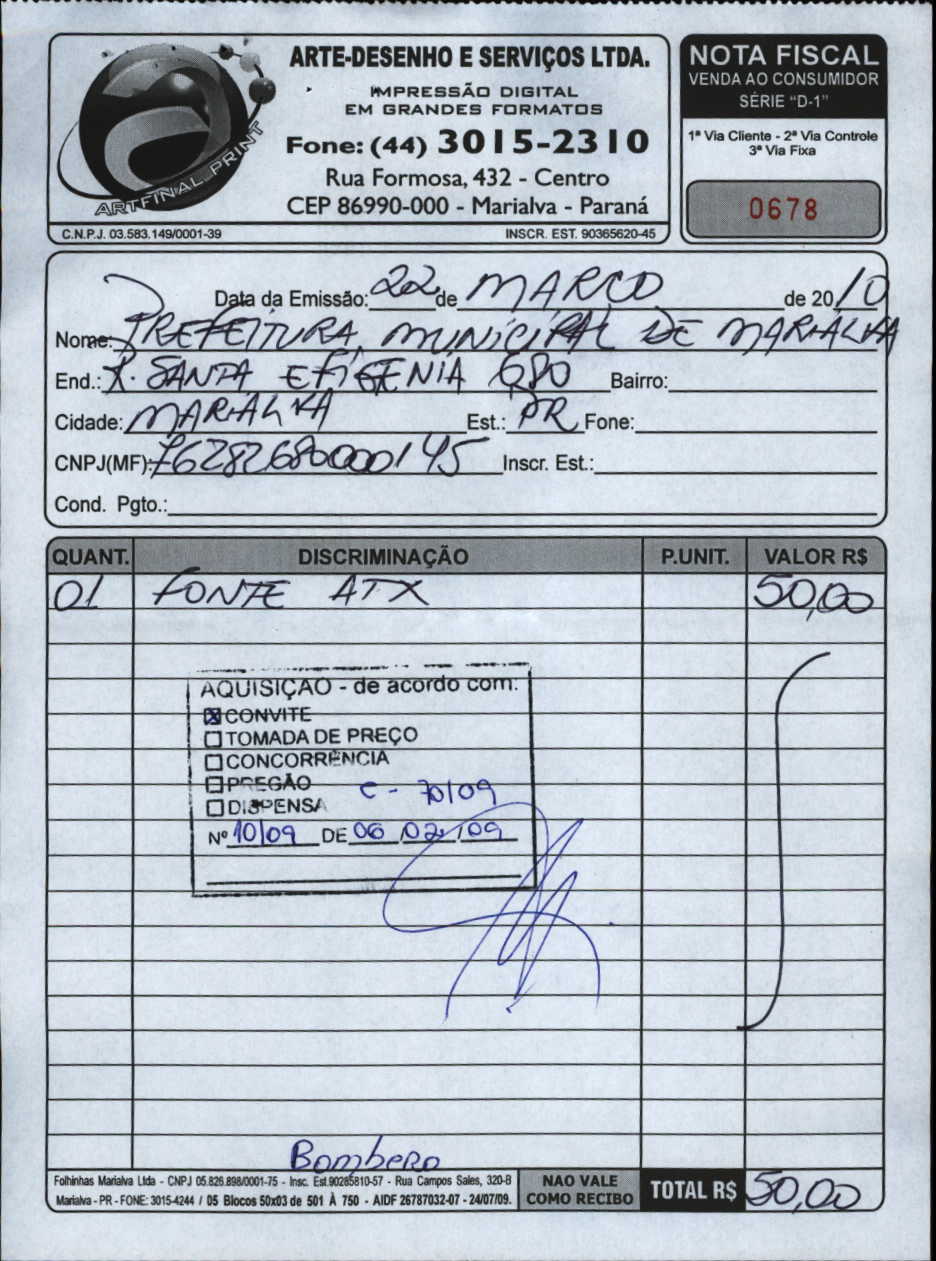 ARTE-DESENHO E SERVIÇOS LTDA.
IMPRESSÃO DIGITAL
EM GRANDES FORMATOS
Fone: (44) 3015-2310
Rua Formosa, 432 - Centro
CEP 86990-000 - Marialva - Paraná
ARTFINAL PRINT
C.N.P.J. 03.583.149/0001-39 INSCR. EST. 90365620-45
NOTA FISCAL
VENDA AO CONSUMIDOR
SÉRIE "D-1"
1ª Via Cliente - 2ª Via Controle
3ª Via Fixa
0678
Data da Emissão: 22 de MARCO de 20 10
Nome: PREFEITURA MUNICIPAL DE MARIALVA
End.: R. SANTA EFIGENIA 680 Bairro:
Cidade: MARIALVA Est.: PR Fone:
CNPJ(MF): 76282680000145 Inscr. Est.:
Cond. Pgto.:
QUANT. DISCRIMINAÇÃO P.UNIT. VALOR R$
01 FONTE ATX 50,00
AQUISIÇÃO - de acordo com:
CONVITE
TOMADA DE PREÇO
CONCORRÊNCIA
PREGÃO
C - 70/09
DISPENSA
Nº 10/09 DE 06/02/09
Bombero
Folhinhas Marialva Ltda - CNPJ 05.826.898/0001-75 - Insc. Est.90285810-57 - Rua Campos Sales, 320-B
Marialva - PR - FONE: 3015-4244 / 05 Blocos 50x03 de 501 À 750 - AIDF 26787032-07 - 24/07/09.
NAO VALE
COMO RECIBO
TOTAL R$ 50,00